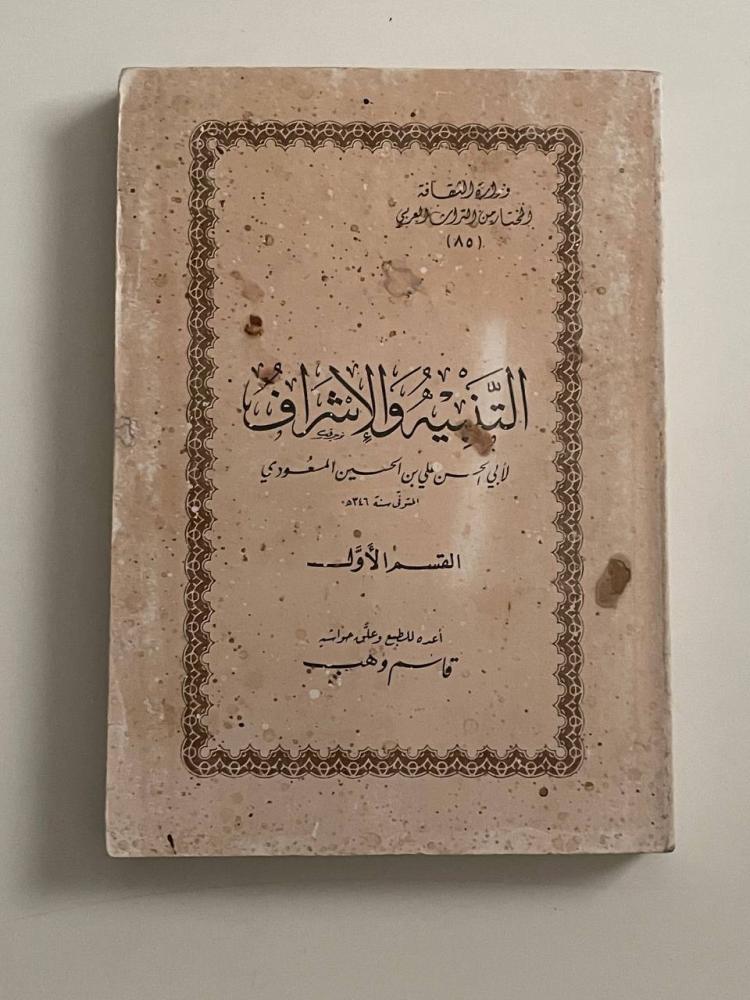 وزارة الثقافة
المختار من التراث العربي
(٨٥)
التَّنْبِيْهُ وَالإِشْرَافُ
لأبي الحسن علي بن الحسين المسعُودي
المتوفّى سنة ٣٤٦هـ
القسم الأوَّل
أعده للطبع وعلَّق حواشيه
قاسم وهب